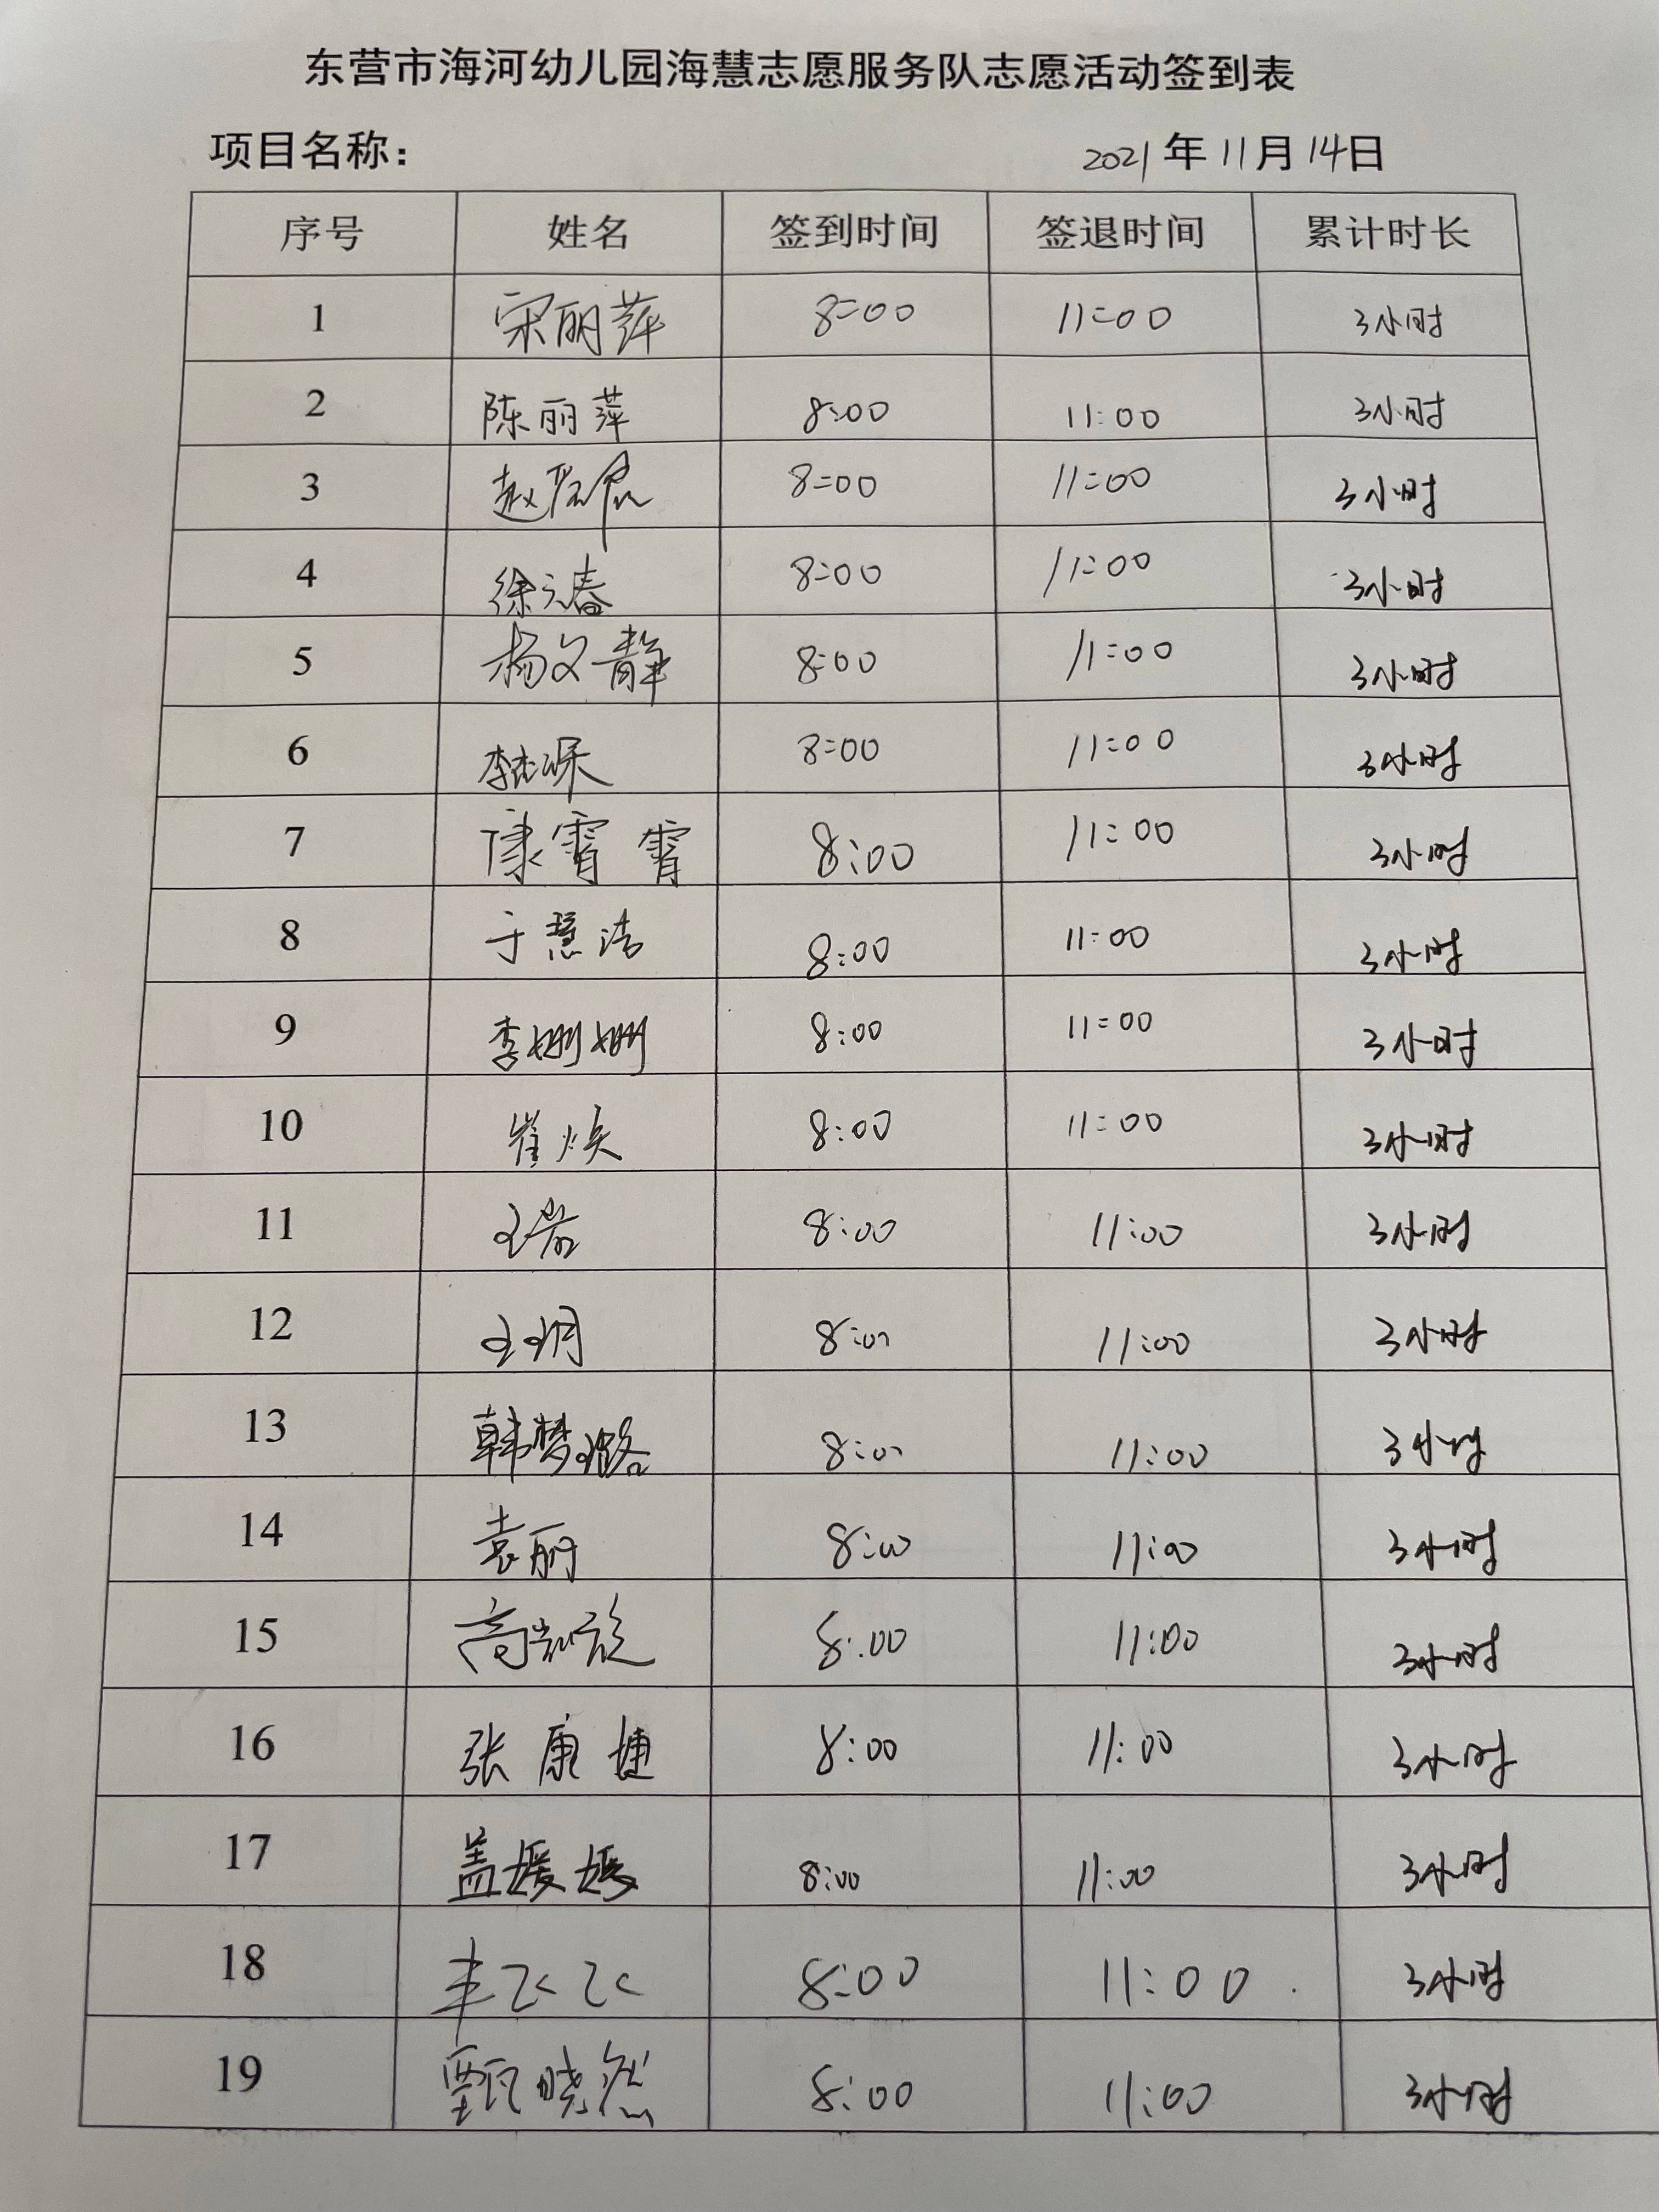 东营市海河幼儿园海慧志愿服务队志愿活动签到表
项目名称： 2021年11月14日
序号 姓名 签到时间 签退时间 累计时长
1 宋丽萍 8:00 11:00 3小时
2 陈丽萍 8:00 11:00 3小时
3 赵 8:00 11:00 3小时
4 徐元春 8:00 11:00 3小时
5 杨文静 8:00 11:00 3小时
6 李 8:00 11:00 3小时
7 康霄霄 8:00 11:00 3小时
8 于慧洁 8:00 11:00 3小时
9 李姗姗 8:00 11:00 3小时
10 崔焕 8:00 11:00 3小时
11 王岩 8:00 11:00 3小时
12 王玥 8:00 11:00 3小时
13 韩梦璐 8:00 11:00 3小时
14 袁丽 8:00 11:00 3小时
15 高 8:00 11:00 3小时
16 张康捷 8:00 11:00 3小时
17 盖媛媛 8:00 11:00 3小时
18 丰飞飞 8:00 11:00 3小时
19 甄晓然 8:00 11:00 3小时